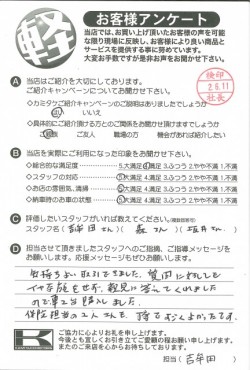 軽
お客様アンケート
当店では、お買い上げ頂いたお客様の声を可能
な限り現場に反映し、お客様により良い商品と
サービスを提供する事に努めています。
大変お手数ですが是非お声をお聞かせ下さい。
検印
2.6.11
社長
A 当店はご紹介を大切にしております。
ご紹介キャンペーンについてお聞かせ下さい。
◇カミタケご紹介キャンペーンのご説明はありましたでしょうか
はい いいえ
◇具体的にご紹介頂ける方とのご関係をお聞かせ頂けますでしょうか
ご友人 職場の方 機会があれば紹介したい
B 当店を実際にご利用になった印象をお聞かせ下さい。
◇総合的な満足度 5.大満足 4.満足 3.ふつう 2.やや不満 1.不満
◇スタッフの対応 5.大満足 4.満足 3.ふつう 2.やや不満 1.不満
◇お店の雰囲気、清掃 5.大満足 4.満足 3.ふつう 2.やや不満 1.不満
◇納車時のお車の状態 5.大満足 4.満足 3.ふつう 2.やや不満 1.不満
C 評価したいスタッフがいれば教えてください。(複数回答可)
スタッフ名( 吉牟田 さん)( 森 さん)( さん)
D 担当させて頂きましたスタッフへのご指摘、ご指導メッセージを
お願いします。応援メッセージもぜひお願いします。
気持ちよい取引できました。質問に対しても
イヤな顔をせず、親見に答えてくれました
ので車を購入しました。
さんも、待てなくよかったです。
K
ご協力に心よりお礼を申し上げます。
今後とも宜しくお引き立てご愛顧の程お願い申し上げます。
またのご来店を心からお待ちしております。
担当( 吉牟田 )